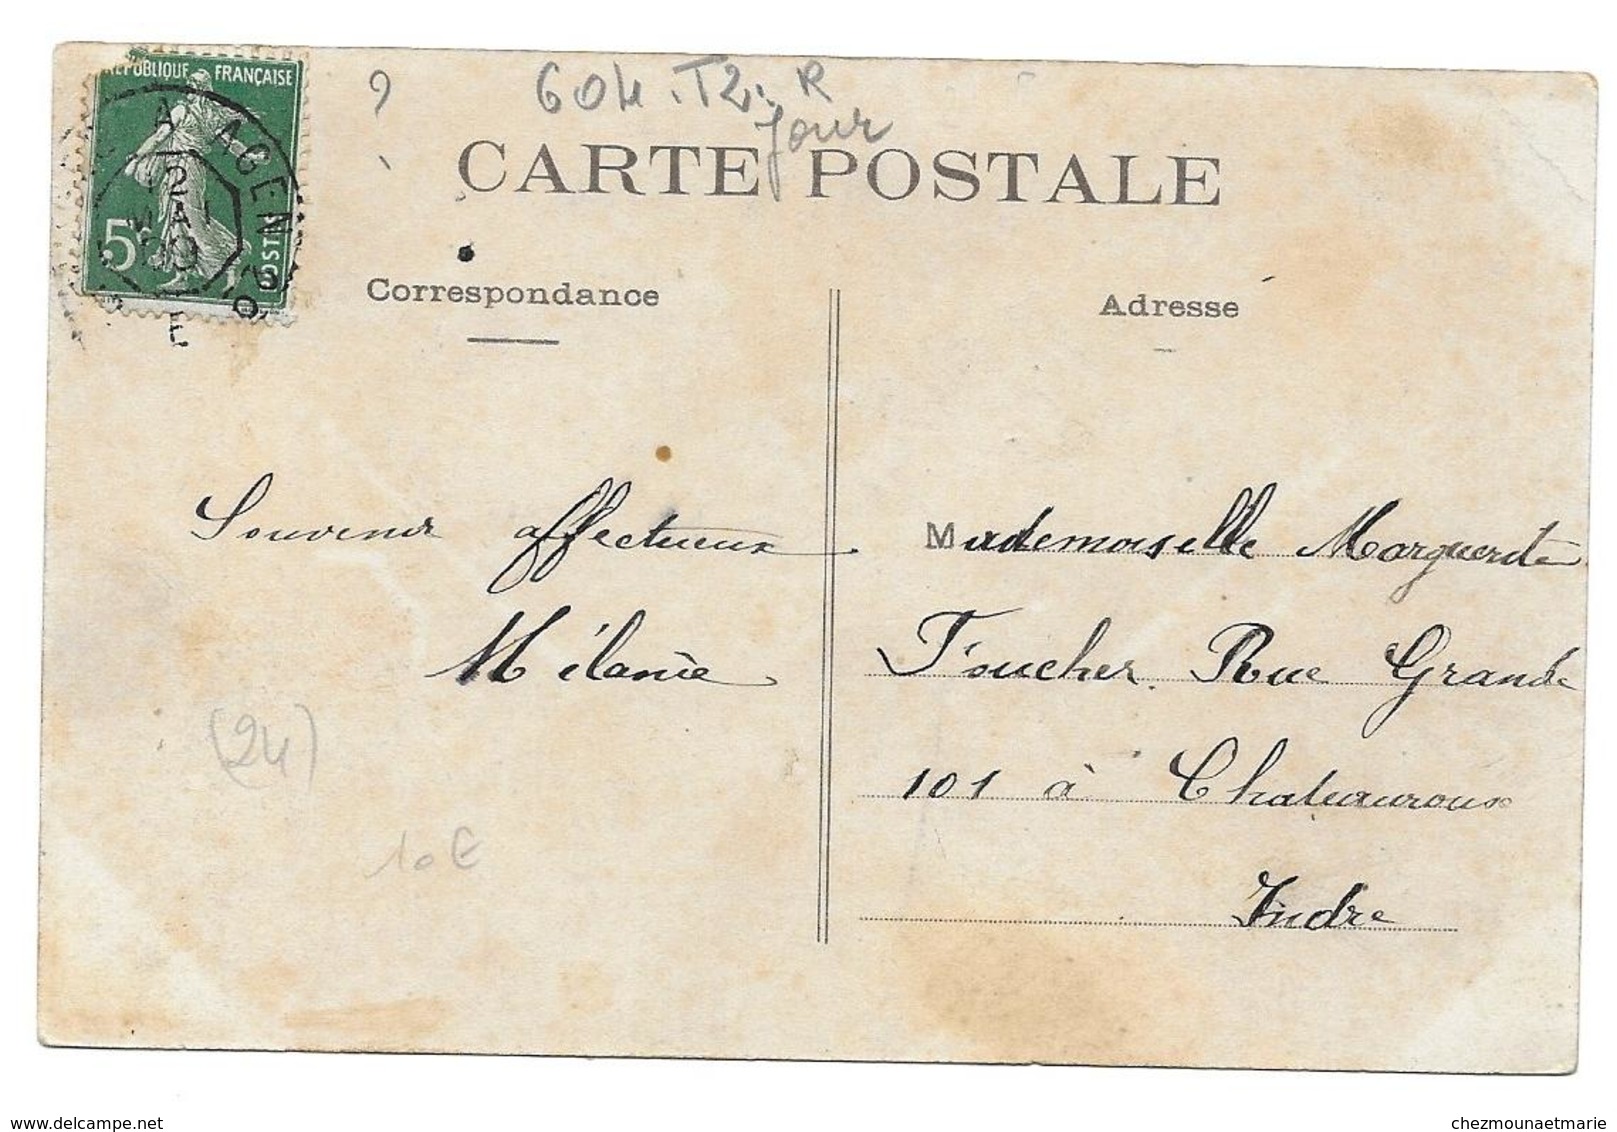 RÉPUBLIQUE FRANÇAISE
5c
POSTES
A AGEN
12
MAI
09
E
?
604 . T2 . R
Jour
CARTE POSTALE
Correspondance
Adresse
Souvenir affectueux
Mélanie
Mademoiselle Marguerite
Foucher. Rue Grande
101 à Chateauroux
Indre
(24)
10 €
chezmounaetmarie
delcampe.net